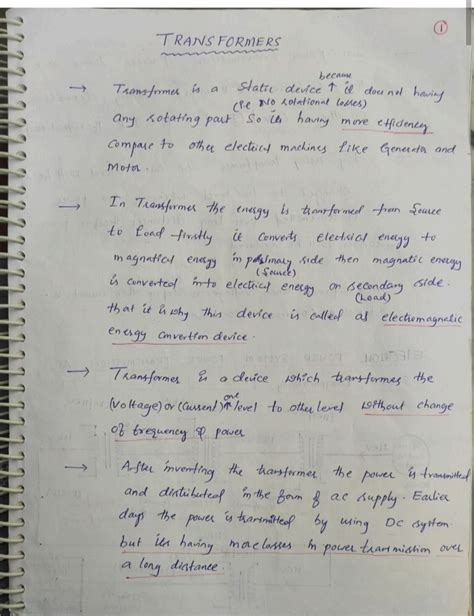 1
TRANSFORMERS
→ Transformer is a Static device ↑ it dou not having
because
(i.e No rotational losses)
any rotating part So its having more efficiency
Compare to other electrical machines like Generator and
Motor.
→ In Transformer the energy is transformed from Source
to Load firstly it converts electrical energy to
magnatical energy in primary side then magnatic energy
(Source)
is converted into electrical energy on secondary side.
(Load)
that it is why this device is called as electromagnatic
energy convertion device.
→ Transformer is a device which transformes the
(voltage) or (current) ↑ level to other level without change
one
of frequency & power
→ After inventing the transformer the power is transmitted
and distributed in the form of ac supply. Earlier
days the power is transmitted by using DC system
but its having more losses in power transmission over
a long distance.